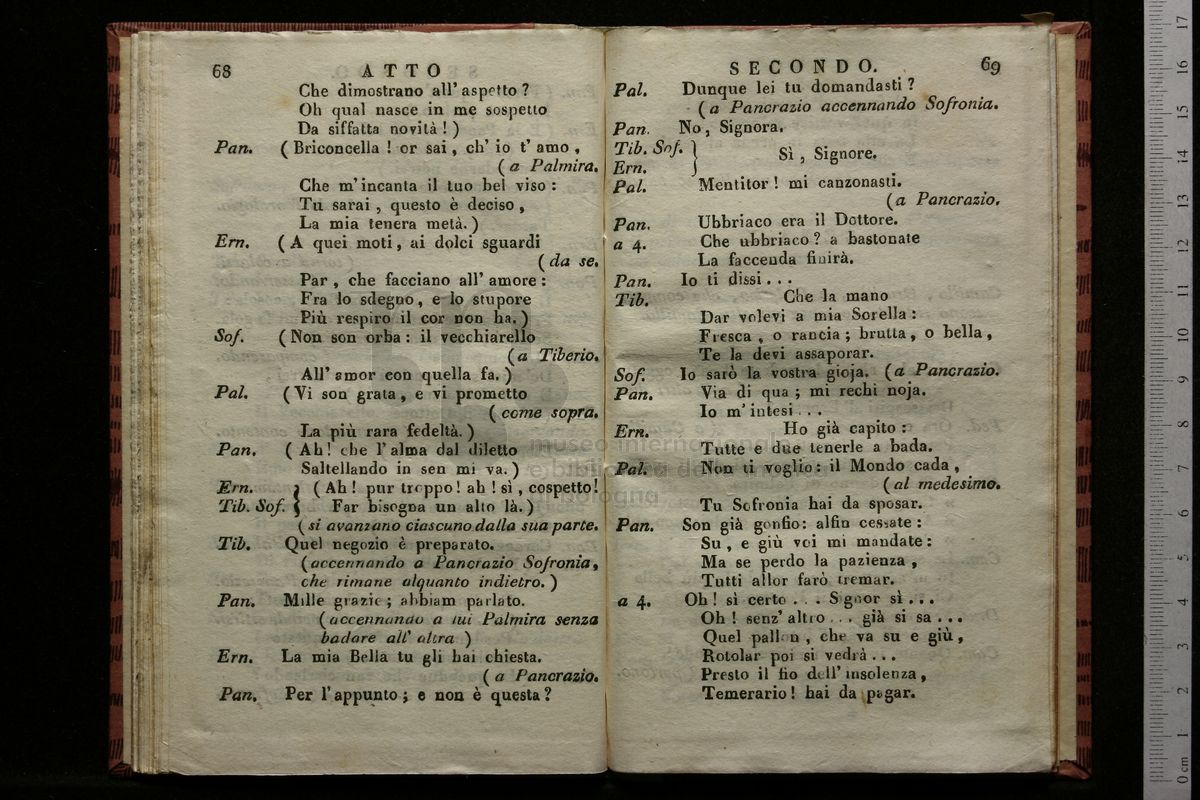 68 ATTO
Che dimostrano all' aspetto ?
Oh qual nasce in me sospetto
Da siffatta novità ! )
Pan. ( Briconcella ! or sai , ch' io t' amo ,
( a Palmira.
Che m' incanta il tuo bel viso :
Tu sarai , questo è deciso ,
La mia tenera metà. )
Ern. ( A quei moti , ai dolci sguardi
( da se.
Par , che facciano all' amore :
Fra lo sdegno , e lo stupore
Più respiro il cor non ha. )
Sof. ( Non son orba : il vecchiarello
( a Tiberio.
All' amor con quella fa. )
Pal. ( Vi son grata , e vi prometto
( come sopra.
La più rara fedeltà. )
Pan. ( Ah ! che l' alma dal diletto
Saltellando in sen mi va. )
Ern. } ( Ah ! pur troppo ! ah ! sì , cospetto !
Tib. Sof. } Far bisogna un alto là. )
( si avanzano ciascuno dalla sua parte.
Tib. Quel negozio è preparato.
( accennando a Pancrazio Sofronia,
che rimane alquanto indietro. )
Pan. Mille grazie ; abbiam parlato.
( accennando a lui Palmira senza
badare all' altra )
Ern. La mia Bella tu gli hai chiesta.
( a Pancrazio.
Pan. Per l' appunto ; e non è questa ?
SECONDO. 69
Pal. Dunque lei tu domandasti ?
( a Pancrazio accennando Sofronia.
Pan. No , Signora.
Tib. Sof. } Sì , Signore.
Ern. }
Pal. Mentitor ! mi canzonasti.
( a Pancrazio.
Pan. Ubbriaco era il Dottore.
a 4. Che ubbriaco ? a bastonate
La faccenda finirà.
Pan. Io ti dissi . . .
Tib. Che la mano
Dar volevi a mia Sorella :
Fresca , o rancia ; brutta , o bella ,
Te la devi assaporar.
Sof. Io sarò la vostra gioja. ( a Pancrazio.
Pan. Via di qua ; mi rechi noja.
Io m' intesi . . .
Ern. Ho già capito :
Tutte e due tenerle a bada.
Pal. Non ti voglio : il Mondo cada ,
( al medesimo.
Tu Sofronia hai da sposar.
Pan. Son già gonfio : alfin cessate :
Su , e giù voi mi mandate :
Ma se perdo la pazienza ,
Tutti allor farò tremar.
a 4. Oh ! sì certo . . . Signor sì . . .
Oh ! senz' altro . . . già si sa . . .
Quel pallon , che va su e giù ,
Rotolar poi si vedrà . . .
Presto il fio dell' insolenza ,
Temerario ! hai da pagar.
museo internazionale
e biblioteca della musica
bologna
0 cm 1 2 3 4 5 6 7 8 9 10 11 12 13 14 15 16 17